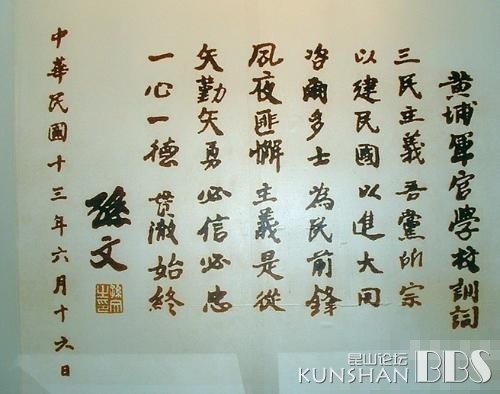 黃埔軍官學校訓詞
三民主義 吾黨所宗
以建民國 以進大同
咨爾多士 為民前鋒
夙夜匪懈 主義是從
矢勤矢勇 必信必忠
一心一德 貫澈始終
孫文
孫文之印
中華民國十三年六月十六日
昆山论坛
KUNSHAN BBS